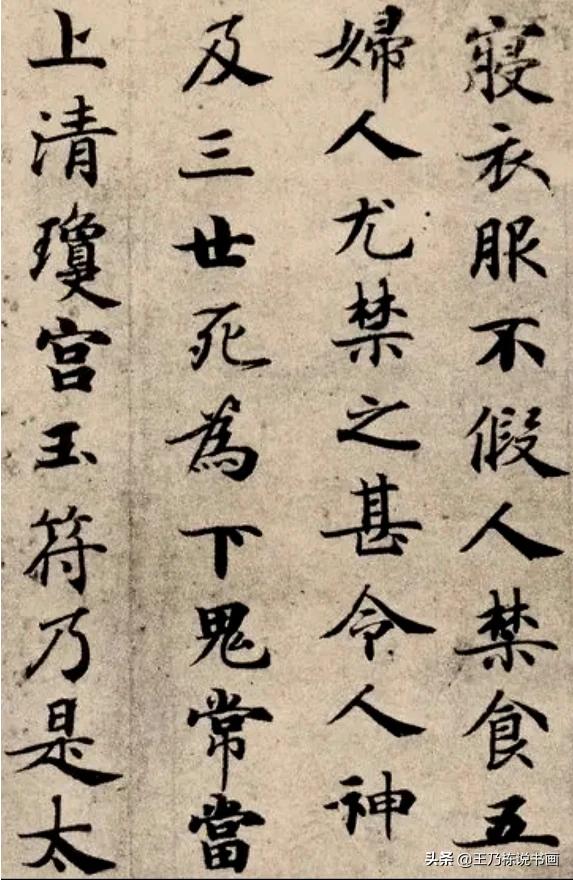 寝衣服不假人禁食五
婦人尤禁之甚令人神
及三世死為下鬼常當
上清瓊宮玉符乃是太
头条 @王乃栋说书画